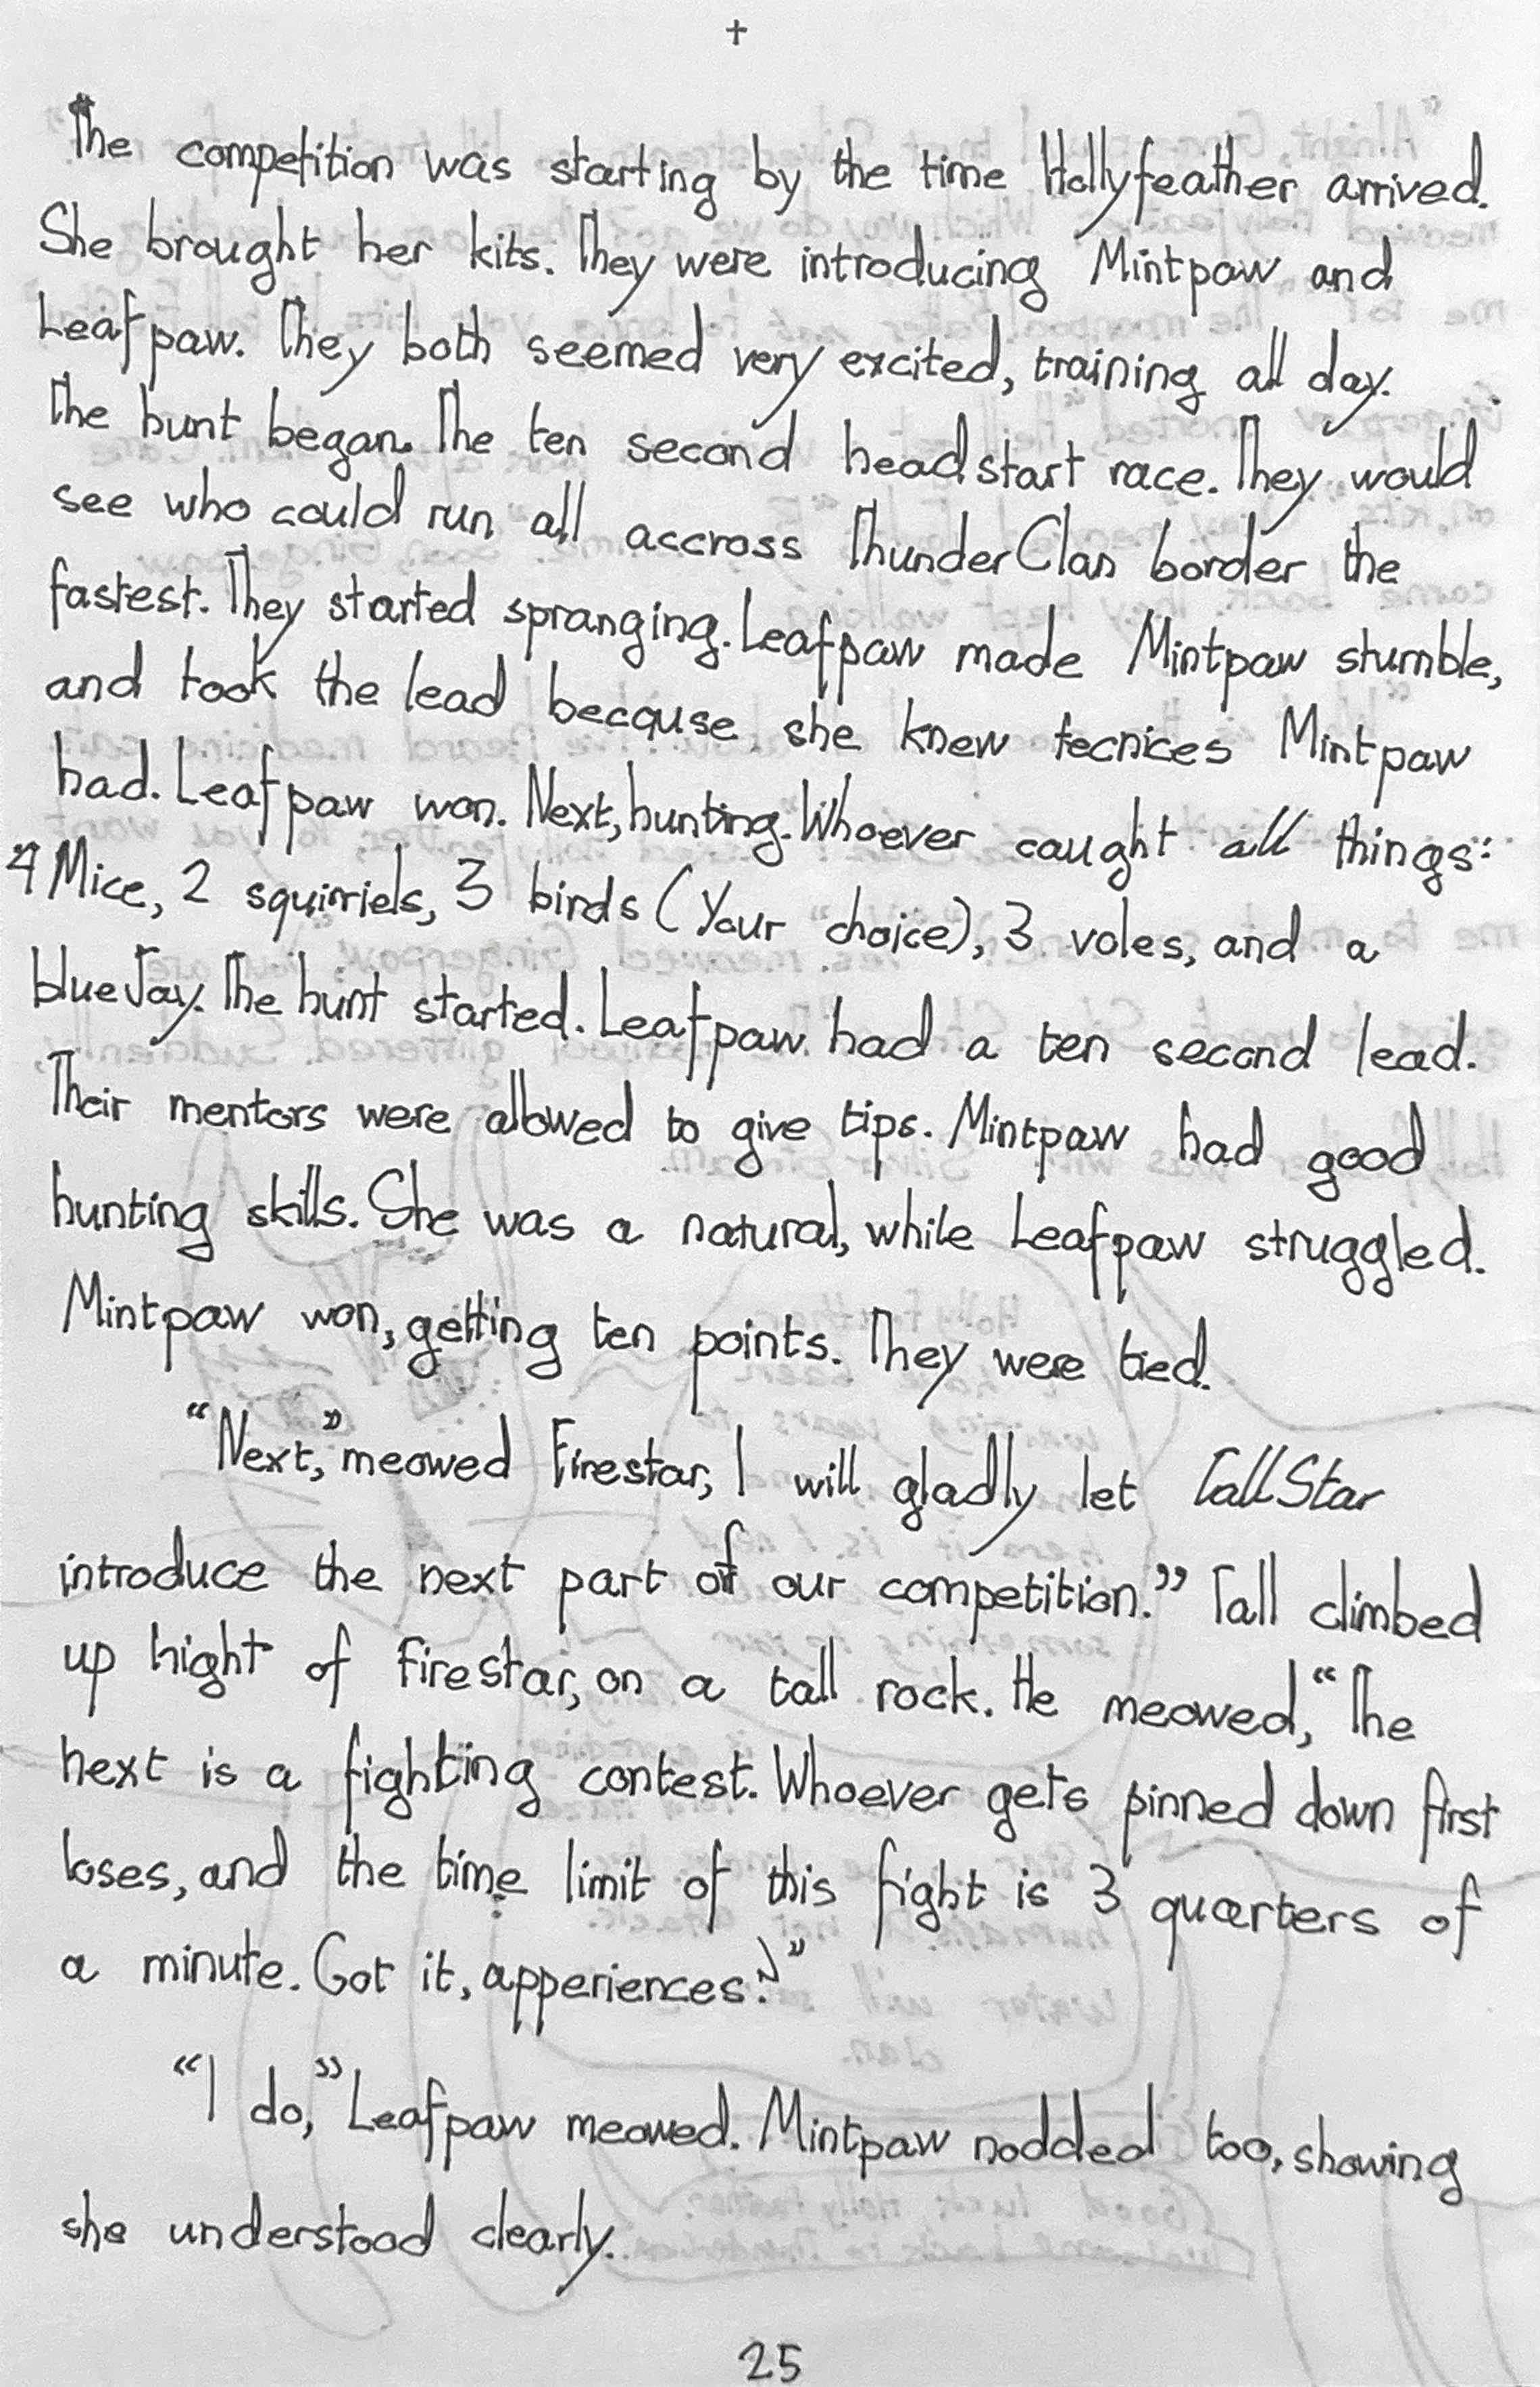 +
The competition was starting by the time Hollyfeather arrived.
She brought her kits. They were introducing Mintpaw and
Leafpaw. They both seemed very excited, training all day.
The hunt began. The ten second head start race. They would
see who could run all accross ThunderClan border the
fastest. They started spranging. Leafpaw made Mintpaw stumble,
and took the lead because she knew tecnices Mintpaw
had. Leafpaw won. Next, hunting. Whoever caught all things:
4 Mice, 2 squirriels, 3 birds (Your choice), 3 voles, and a
blueJay. The hunt started. Leafpaw had a ten second lead.
Their mentors were allowed to give tips. Mintpaw had good
hunting skills. She was a natural, while Leafpaw struggled.
Mintpaw won, getting ten points. They were tied.
"Next," meowed Firestar, I will gladly let TallStar
introduce the next part of our competition." Tall climbed
up hight of Firestar, on a tall rock. He meowed, "The
next is a fighting contest. Whoever gets pinned down first
loses, and the time limit of this fight is 3 quarters of
a minute. Got it, apperiences?"
"I do," Leafpaw meowed. Mintpaw nodded too, showing
she understood clearly.
25